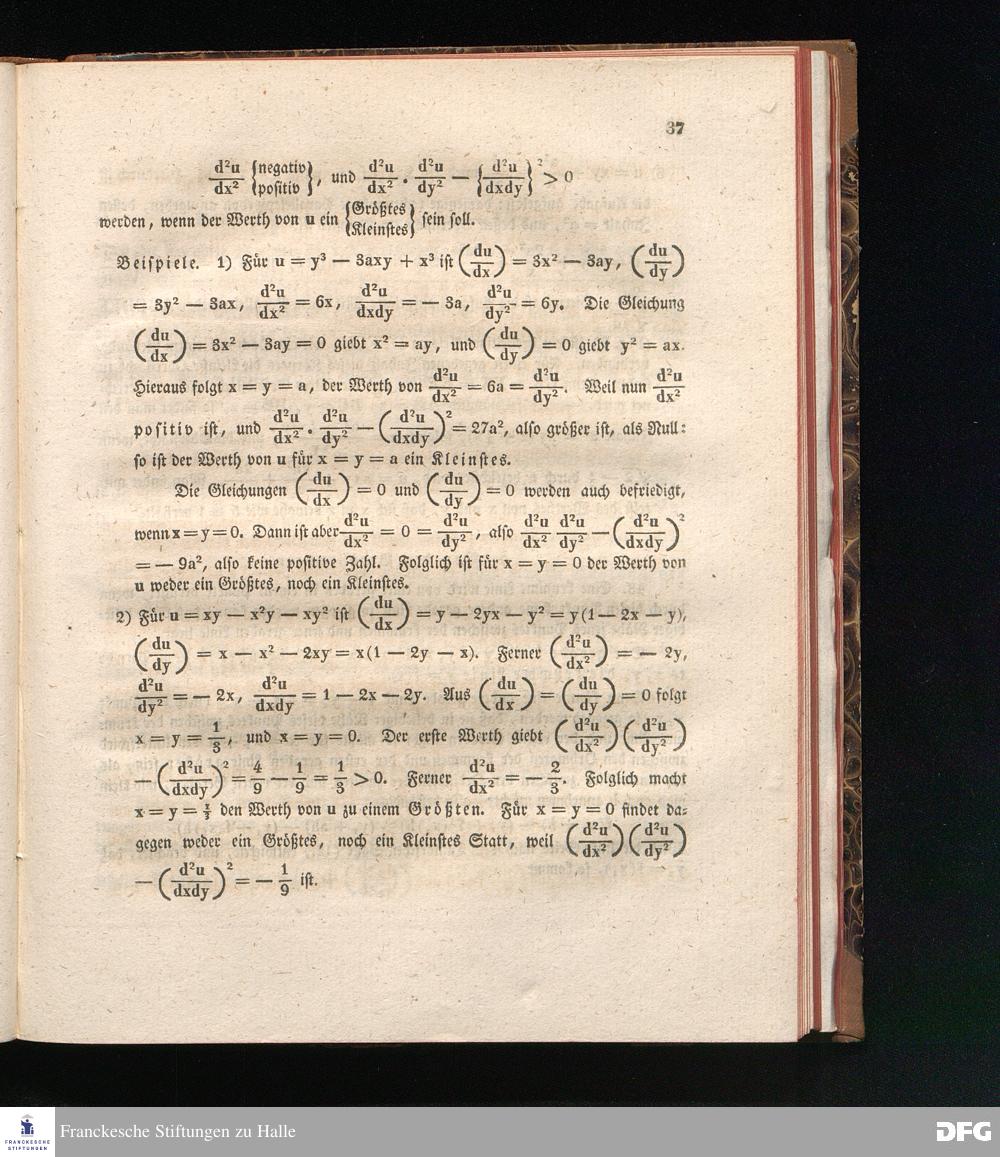 37
d²u/dx² {negativ / positiv}, und d²u/dx² . d²u/dy² — {d²u/dxdy}² > 0
werden, wenn der Werth von u ein {Größtes / Kleinstes} sein soll.
Beispiele. 1) Für u = y³ — 3axy + x³ ist (du/dx) = 3x² — 3ay, (du/dy)
= 3y² — 3ax, d²u/dx² = 6x, d²u/dxdy = — 3a, d²u/dy² = 6y. Die Gleichung
(du/dx) = 3x² — 3ay = 0 giebt x² = ay, und (du/dy) = 0 giebt y² = ax.
Hieraus folgt x = y = a, der Werth von d²u/dx² = 6a = d²u/dy². Weil nun d²u/dx²
positiv ist, und d²u/dx² . d²u/dy² — (d²u/dxdy)² = 27a², also größer ist, als Null:
so ist der Werth von u für x = y = a ein Kleinstes.
Die Gleichungen (du/dx) = 0 und (du/dy) = 0 werden auch befriedigt,
wenn x = y = 0. Dann ist aber d²u/dx² = 0 = d²u/dy², also d²u/dx² d²u/dy² — (d²u/dxdy)²
= — 9a², also keine positive Zahl. Folglich ist für x = y = 0 der Werth von
u weder ein Größtes, noch ein Kleinstes.
2) Für u = xy — x²y — xy² ist (du/dx) = y — 2yx — y² = y(1 — 2x — y),
(du/dy) = x — x² — 2xy = x(1 — 2y — x). Ferner (d²u/dx²) = — 2y,
d²u/dy² = — 2x, d²u/dxdy = 1 — 2x — 2y. Aus (du/dx) = (du/dy) = 0 folgt
x = y = 1/3, und x = y = 0. Der erste Werth giebt (d²u/dx²)(d²u/dy²)
— (d²u/dxdy)² = 4/9 — 1/9 = 1/3 > 0. Ferner d²u/dx² = — 2/3. Folglich macht
x = y = 1/3 den Werth von u zu einem Größten. Für x = y = 0 findet da⸗
gegen weder ein Größtes, noch ein Kleinstes Statt, weil (d²u/dx²)(d²u/dy²)
— (d²u/dxdy)² = — 1/9 ist.
FRANCKESCHE
STIFTUNGEN
Franckesche Stiftungen zu Halle
DFG